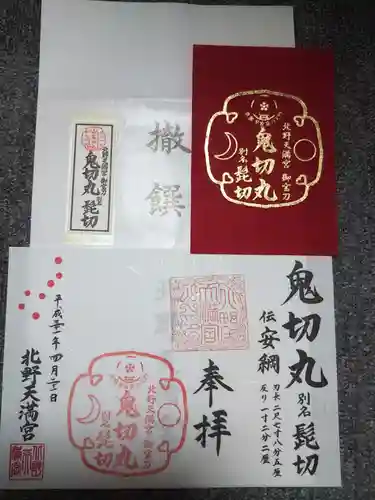 撤饌
北野天満宮 御宝刀
鬼切丸 別名 髭切
北野天満宮 御宝刀
鬼切丸
別名 髭切
鬼切丸 別名 髭切
伝 安綱
刃長 二尺七寸八分五厘
反り 一寸二分二厘
奉拝
北野天満宮 御宝刀
鬼切丸
別名 髭切
北野天満宮